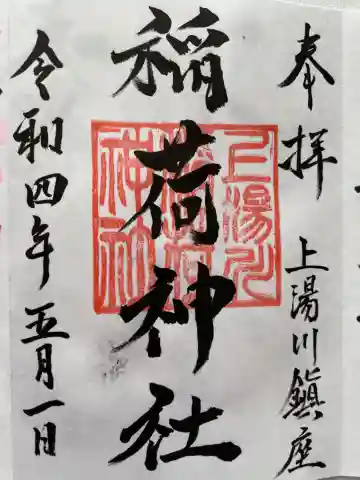 奉拝
上湯川鎮座
稲荷神社
上湯川
稲荷
神社
令和四年五月一日